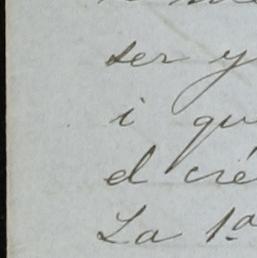 ser y
i qu
el cré
La 1ª